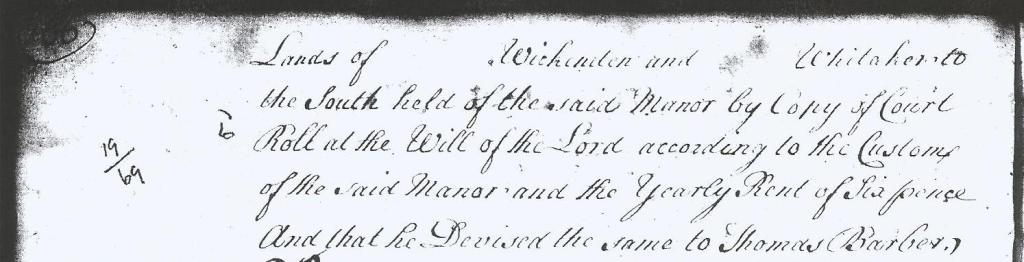 Lands of Wickenden and Whitaker to
the South held of the said Manor by Copy of Court
Roll at the Will of the Lord according to the Custom
19/69
of the said Manor and the Yearly Rent of Six pence
And that he Devised the same to Thomas Barber